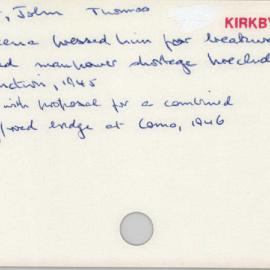 , John Thomas
KIRKBY
pressed him for breakwa
ed manpower shortage preclud
uction, 1945
with proposal for a combined
/road bridge at Como, 1946